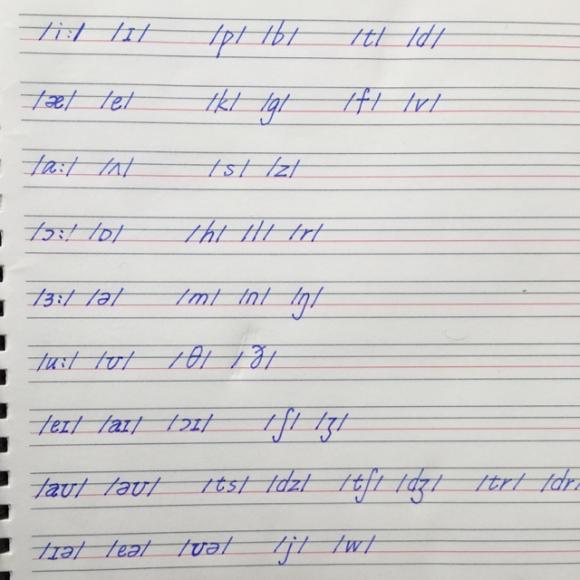 /i:/ /ɪ/ /p/ /b/ /t/ /d/
/æ/ /e/ /k/ /g/ /f/ /v/
/a:/ /ʌ/ /s/ /z/
/ɔ:/ /ɒ/ /h/ /l/ /r/
/ɜ:/ /ə/ /m/ /n/ /ŋ/
/u:/ /ʊ/ /θ/ /ð/
/eɪ/ /aɪ/ /ɔɪ/ /ʃ/ /ʒ/
/aʊ/ /əʊ/ /ts/ /dz/ /tʃ/ /dʒ/ /tr/ /dr/
/ɪə/ /eə/ /ʊə/ /j/ /w/